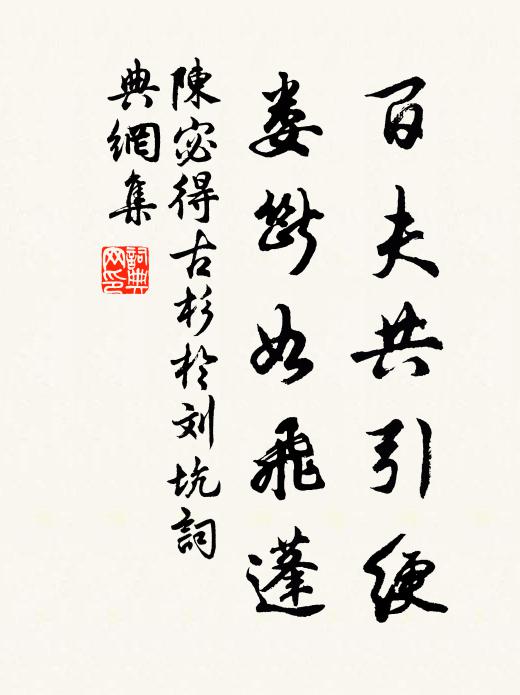 百夫共引綆
娄斷如飛蓬
陳宓得古杉於刘坑詞
典網集
詞典
网印